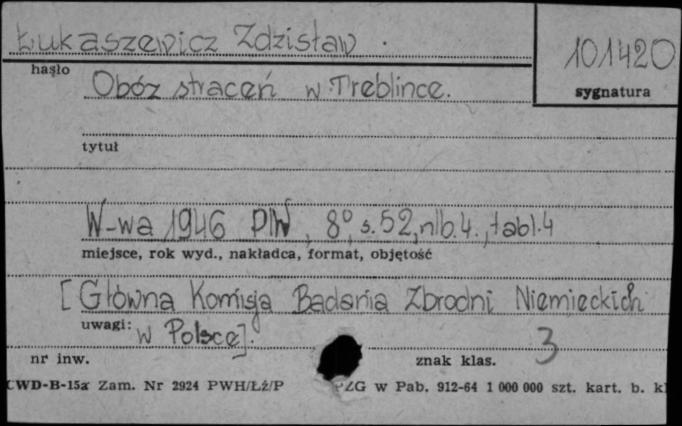 Łukaszewicz Zdzisław.
101420
hasło
Obóz straceń w Treblince.
sygnatura
tytuł
W-wa 1946 PIW, 8°, s. 52, nlb. 4., tabl. 4
miejsce, rok wyd., nakładca, format, objętość
[Główna Komisja Badania Zbrodni Niemieckich
uwagi: w Polsce].
3
nr inw.
znak klas.
CWD-B-15a Zam. Nr 2924 PWH/Łź/P PZG w Pab. 912-64 1 000 000 szt. kart. b. kl